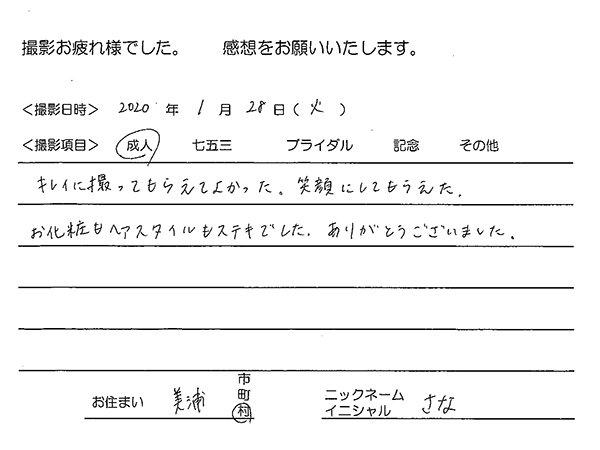 撮影お疲れ様でした。 感想をお願いいたします。
<撮影日時> 2020 年 1 月 28 日 ( 火 )
<撮影項目> 成人 七五三 ブライダル 記念 その他
キレイに撮ってもらえてよかった。笑顔にしてもらえた.
お化粧もヘアスタイルもステキでした. ありがとうございました.
お住まい 美浦 市 町 村
ニックネーム イニシャル さな